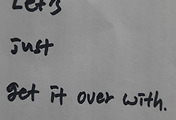 Let's
just
get it over with.